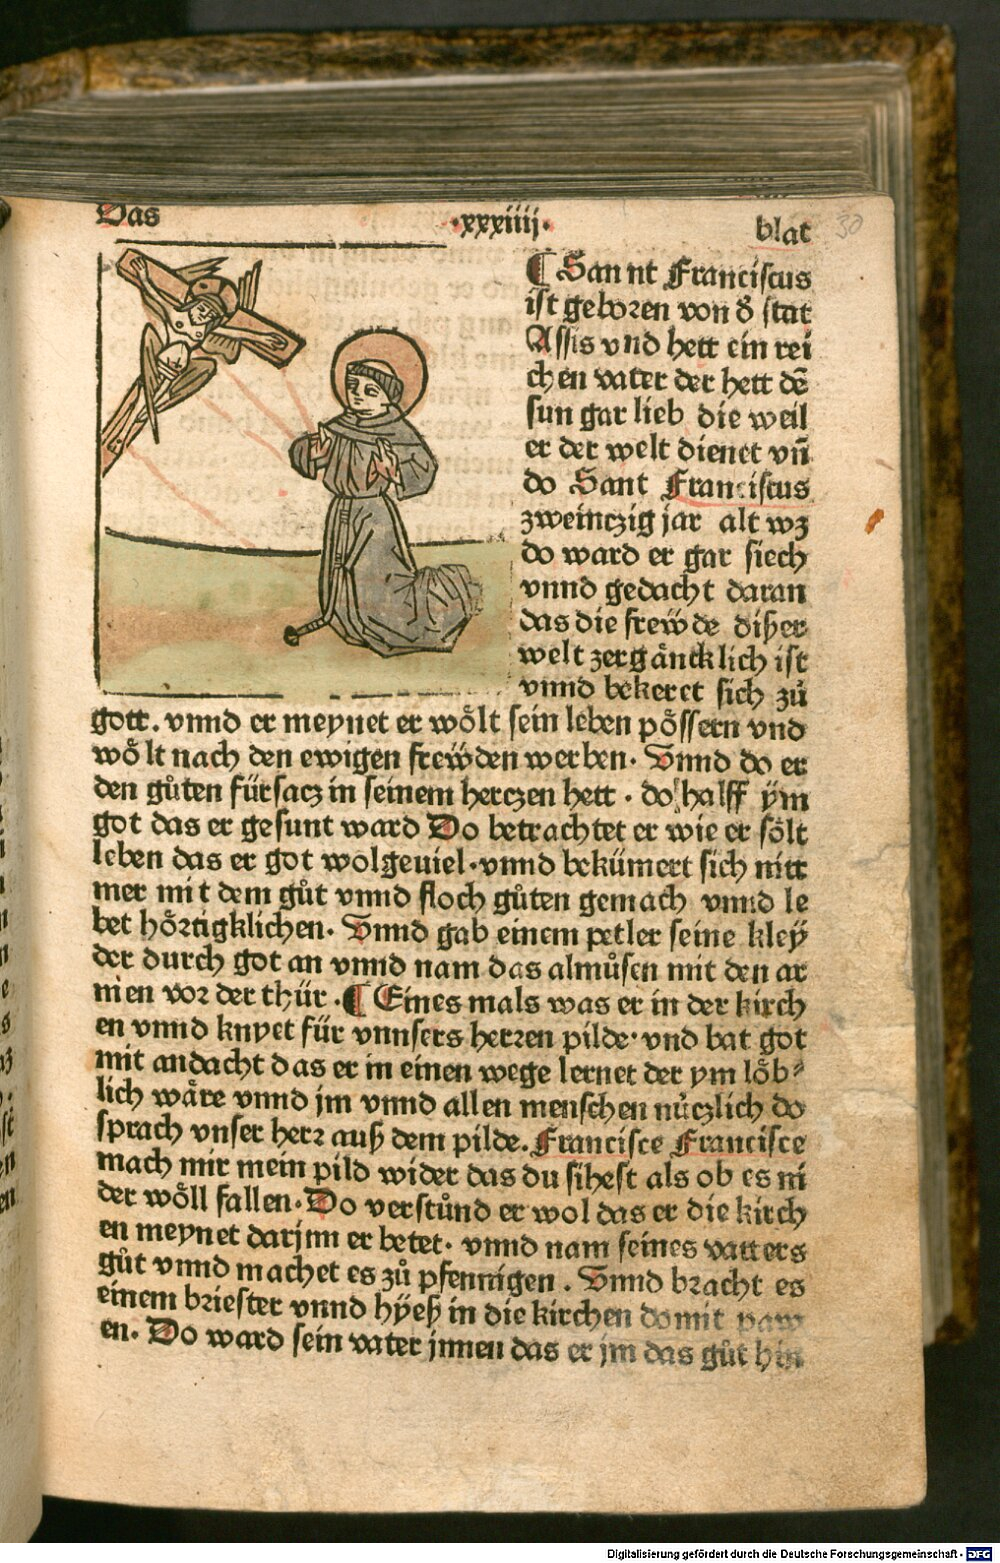 Das .xxxiiij. blat
30
¶ Sannt Franciscus
ist geboren von d̕ stat
Assis vnd hett ein rei
chen vater der hett dē
sun gar lieb die weil
er der welt dienet vn̄
do Sant Franciscus
zweinczig jar alt wz
do ward er gar siech
vnnd gedacht daran
das die frew̎de diser
welt zergäncklich ist
vnnd bekeret sich zů
gott. vnnd er meynet er wo̎lt sein leben po̎ssern vnd
wo̎lt nach den ewigen frew̎den werben. Vnnd do er
den gůten fürsacz in seinem herczen hett . do halff ÿm
got das er gesunt ward Do betrachtet er wie er so̎lt
leben das er got wolgeuiel. vnnd bekümert sich nitt
mer mit dem gůt vnnd floch gůten gemach vnnd le
bet ho̎rtigklichen. Vnnd gab einem petler seine kleÿ
der durch got an vnnd nam das almůsen mit den ar
men vor der thür . ¶ Eines mals was er in der kirch
en vnnd knyet für vnnsers herren pilde. vnd bat got
mit andacht das er in einen wege lernet der ym lo̎b⸗
lich wäre vnnd jm vnnd allen menschen nůczlich do
sprach vnser herr auß dem pilde. Francisce Francisce
mach mir mein pild wider das du sihest als ob es ni
der wo̎ll fallen. Do verstůnd er wol das er die kirch
en meynet darjnn er betet. vnnd nam seines vatters
gůt vnnd machet es zů pfennigen . Vnnd bracht es
einem briester vnnd hÿeß in die kirchen domit paw
en. Do ward sein vater jnnen das er jm das gůt hin
Digitalisierung gefördert durch die Deutsche Forschungsgemeinschaft - DFG